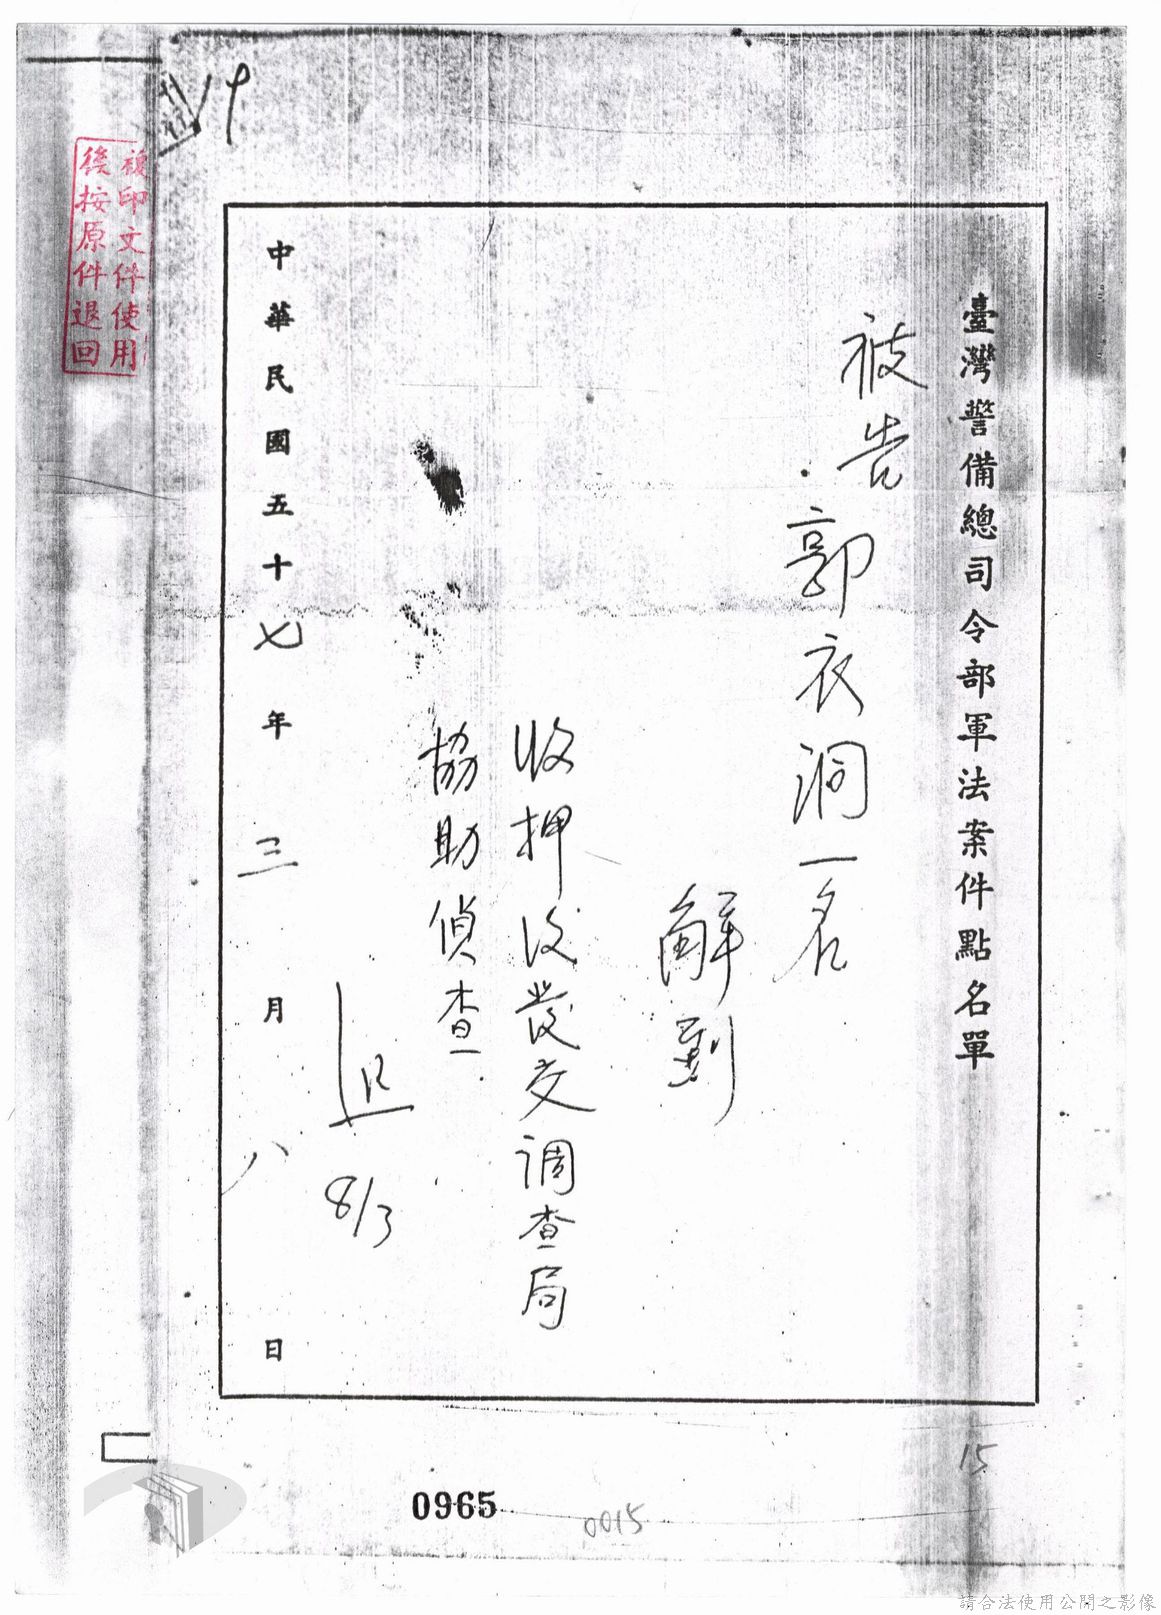 臺灣警備總司令部軍法案件點名單
被告
郭衣洞一名
解到
收押後發交調查局
協助偵查
8/3
中華民國五十七年三月八日
複印文件使用
後按原件退回
15
0965
0015
請合法使用公開之影像